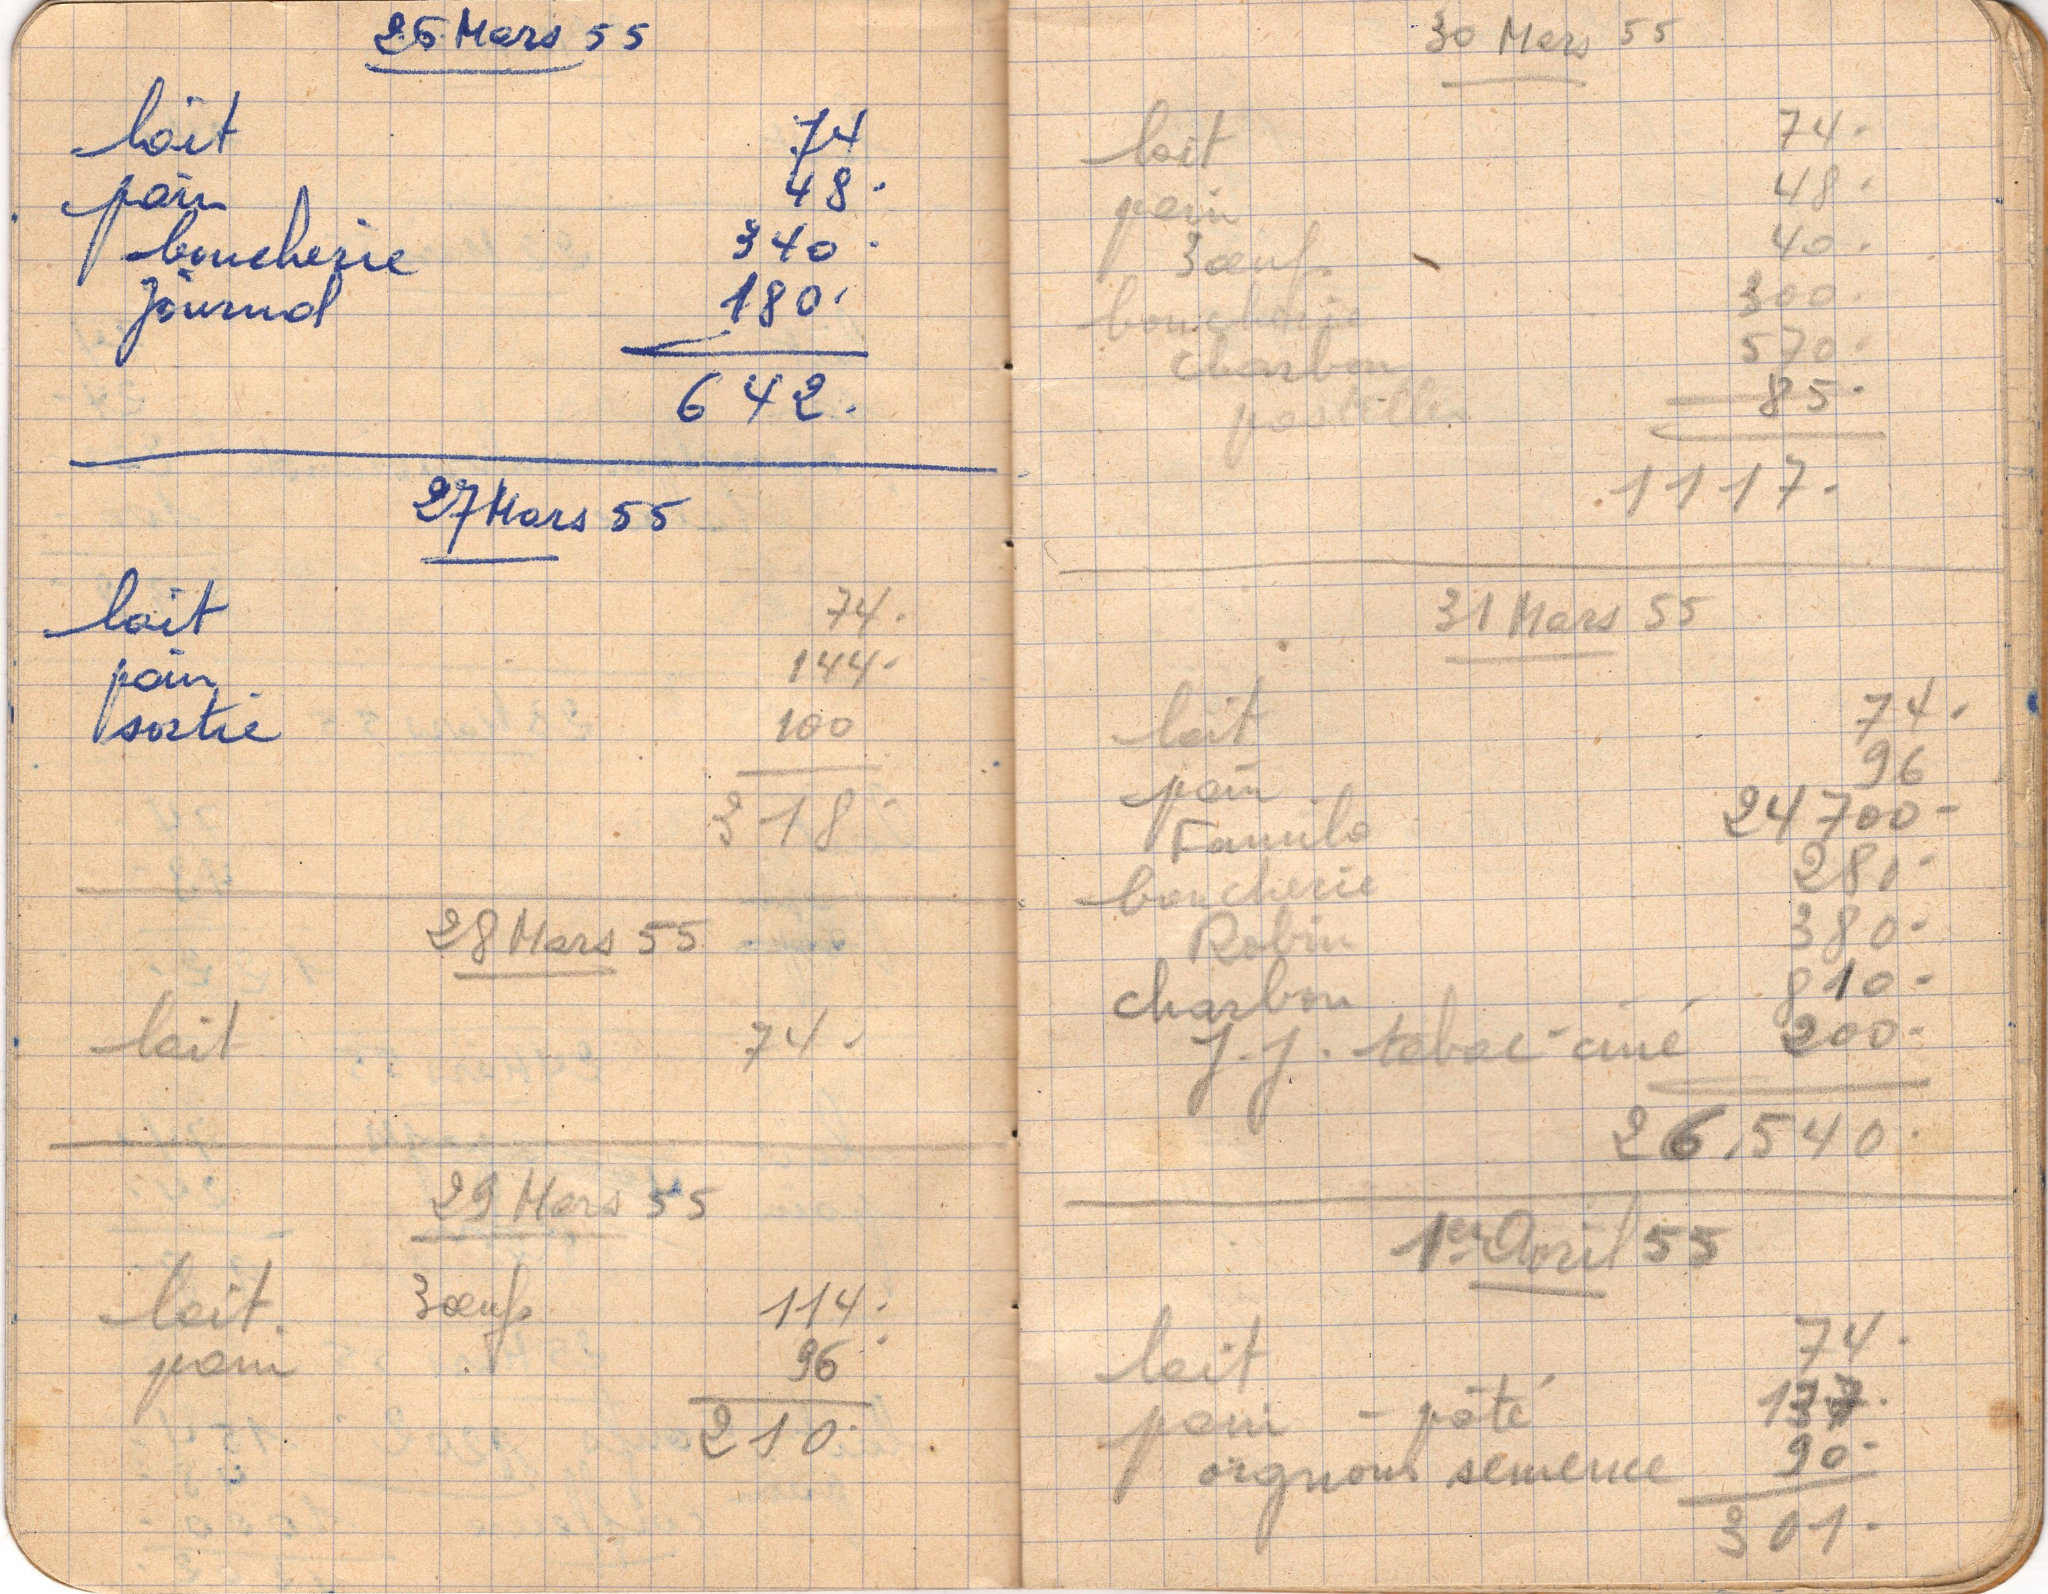 26 Mars 55
lait 74
pain 48.
boucherie 340.
journal 180.
642.
27 Mars 55
lait 74.
pain 144.
sortie 100
318.
28 Mars 55
lait 74.
29 Mars 55
lait. 3 œufs 114.
pain 96.
210.
30 Mars 55
lait 74.
pain 48.
3 œufs. 40.
boucherie 300.
charbon 570.
pastilles 85.
1117.
31 Mars 55
lait 74.
pain 96
Familo 24700-
boucherie 280-
Robin 380-
charbon 810-
J.J. tabac-ciné 200-
26.540.
1er Avril 55
lait 74.
pain - pâté 137.
oignons semence 90-
301.